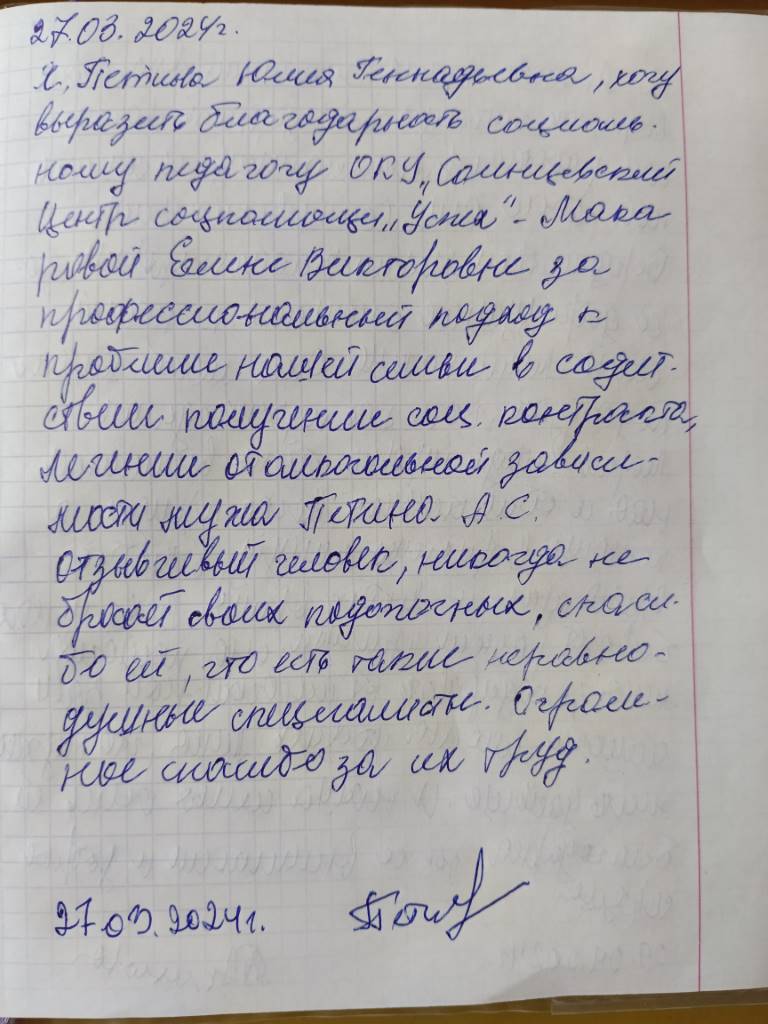 27.03.2024г.
Я, Петина Юлия Геннадьевна, хочу
выразить благодарность социаль-
ному педагогу ОКУ „Солнцевский
Центр соцпомощи „Успех" - Мака
ровой Елене Викторовне за
профессиональный подход к
проблеме нашей семьи в содей-
ствии получении соц. контракта,
лечении от алкогольной зависи-
мости мужа Петина А.С.
Отзывчивый человек, никогда не
бросает своих подопечных, спаси-
бо ей, что есть такие неравно-
душные специалисты. Огром-
ное спасибо за их труд.
27.03.2024г.